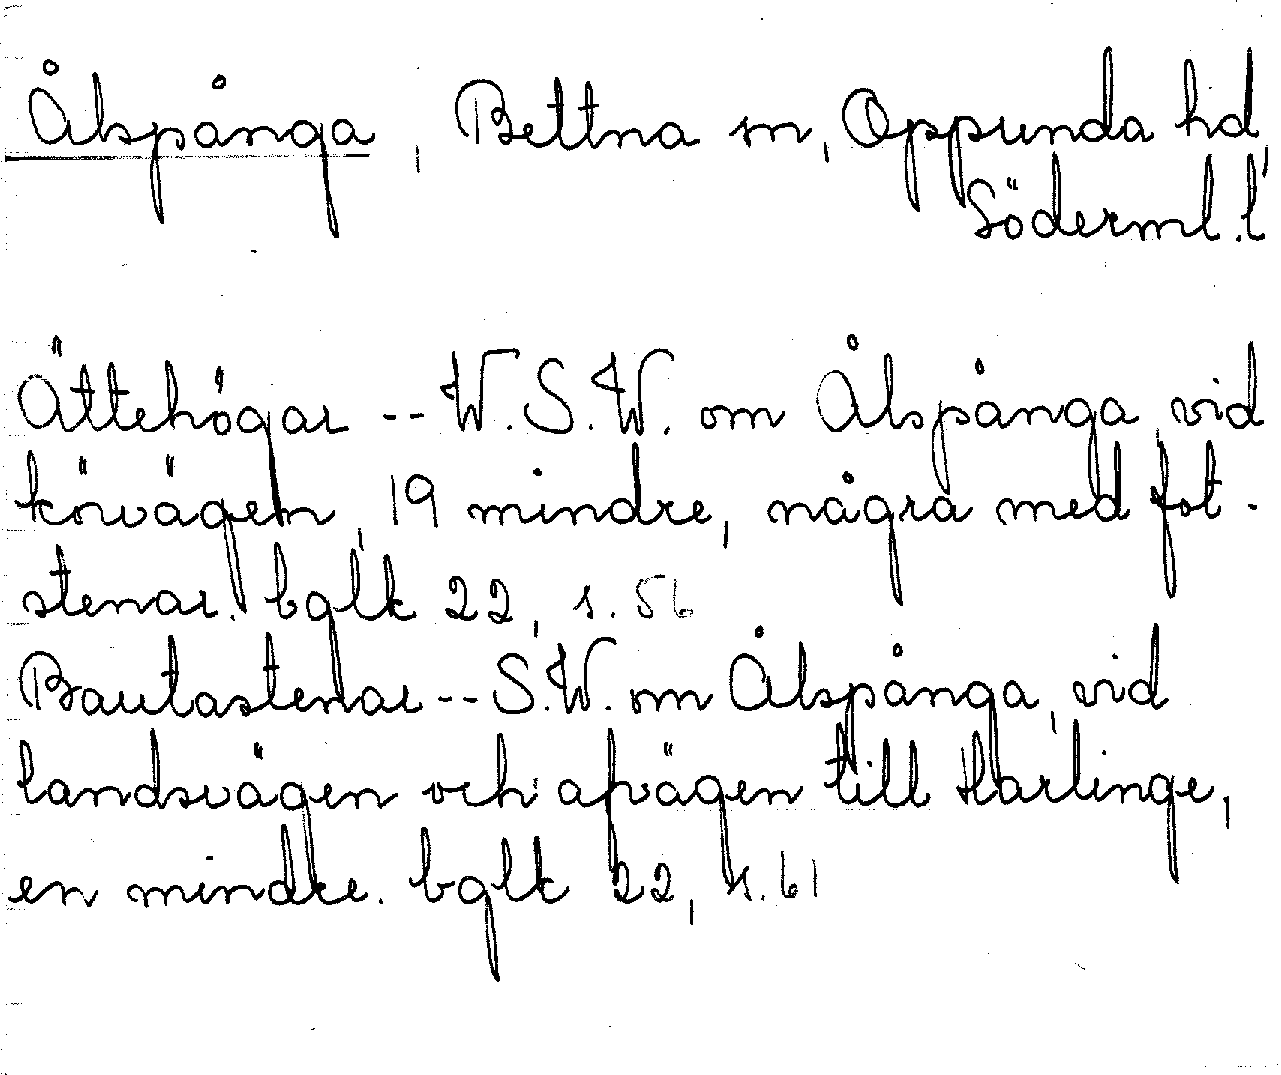 Ålspånga, Bettna sn, Oppunda hd,
Söderml. l.
Ättehögar -- W.S.W. om Ålspånga vid
körvägen, 19 mindre, några med fot-
stenar. bglk 22, s. 56
Bautastenar -- S.W. om Ålspånga, vid
landsvägen och afvägen till Harlinge,
en mindre. bglk 22, s. 61